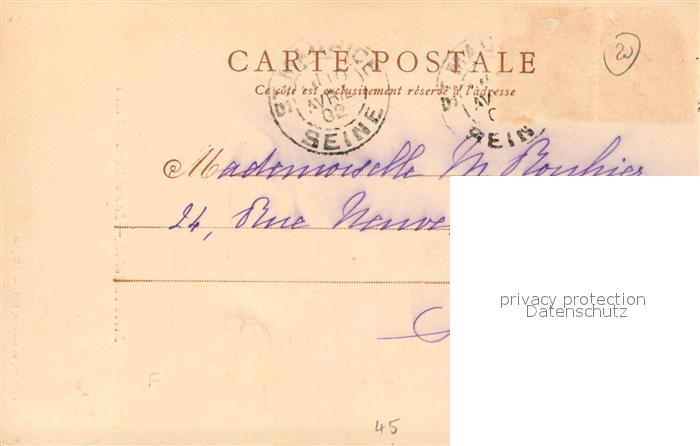 20
CARTE POSTALE
Ce côté est exclusivement réservé à l'adresse
ST MAURICE
AVRIL
02
SEINE
SEINE
Mademoiselle M Rouhier
24, Rue Neuve
privacy protection
Datenschutz
45